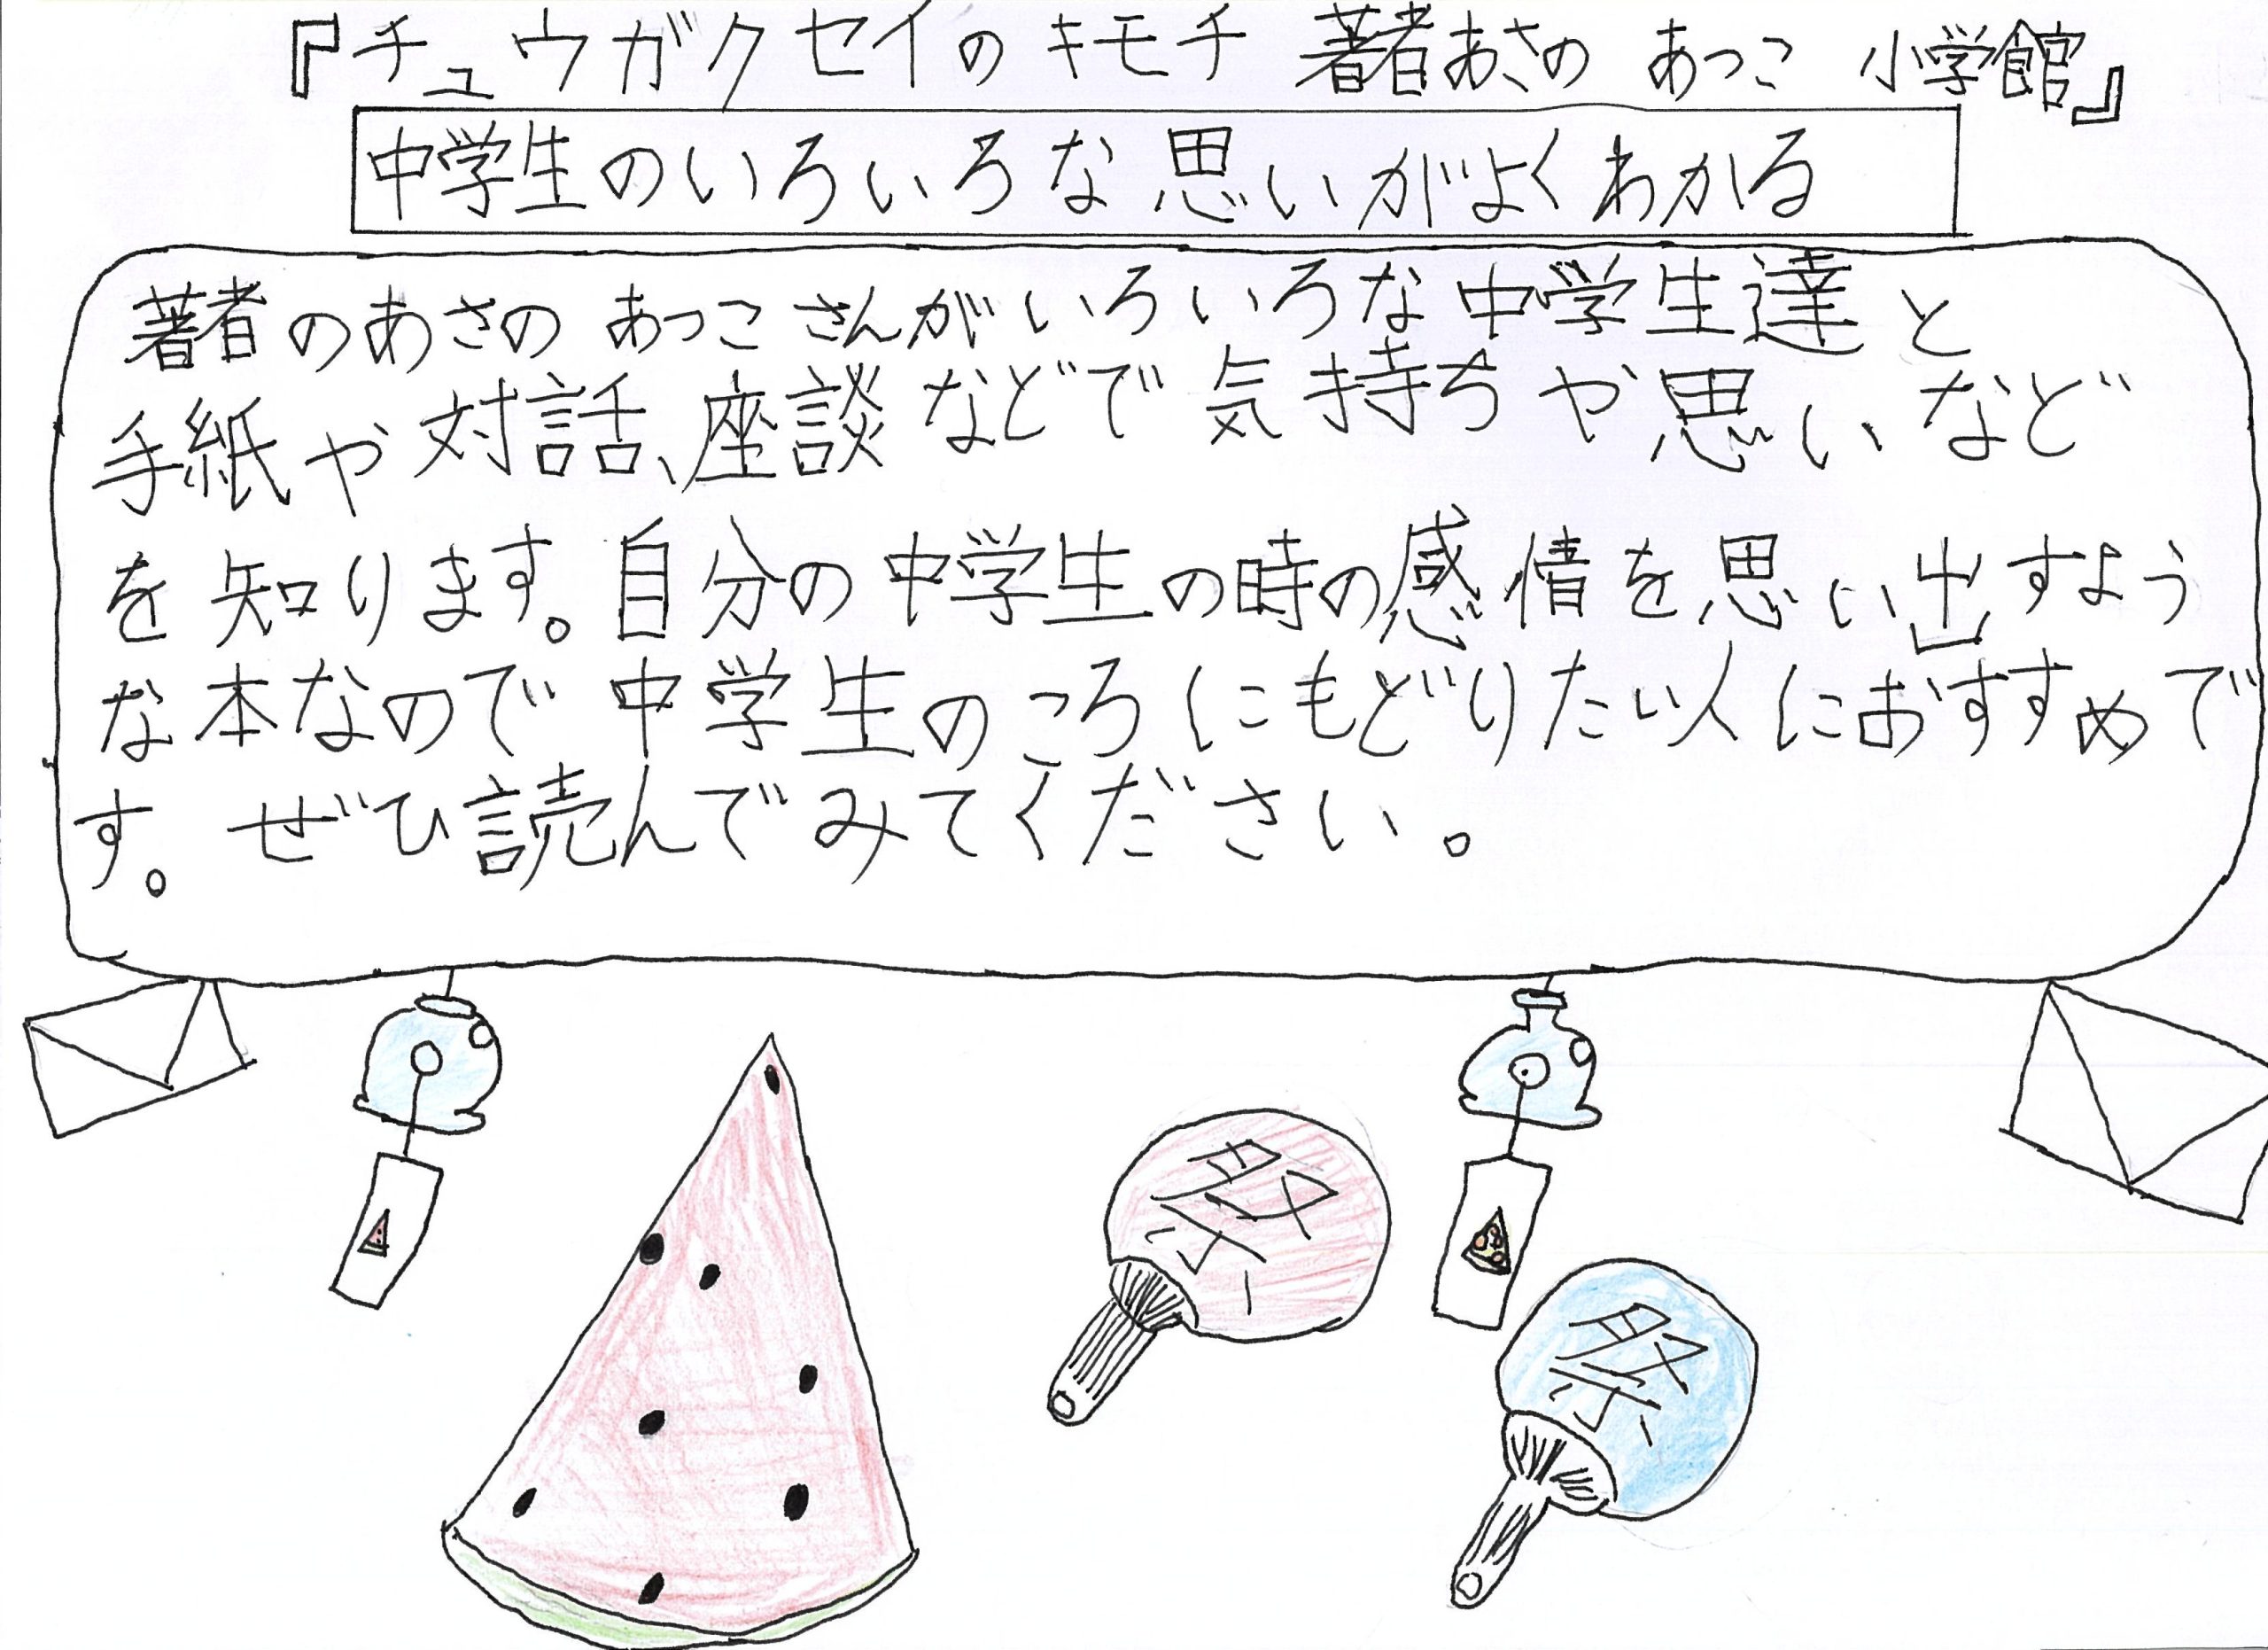 『チュウガクセイのキモチ 著者あさの あつこ 小学館』
中学生のいろいろな思いがよくわかる
著者のあさの あつこさんがいろいろな中学生達と
手紙や対話、座談などで気持ちや思いなど
を知ります。自分の中学生の時の感情を思い出すよう
な本なので中学生のころにもどりたい人におすすめで
す。ぜひ読んでみてください。
祭
祭